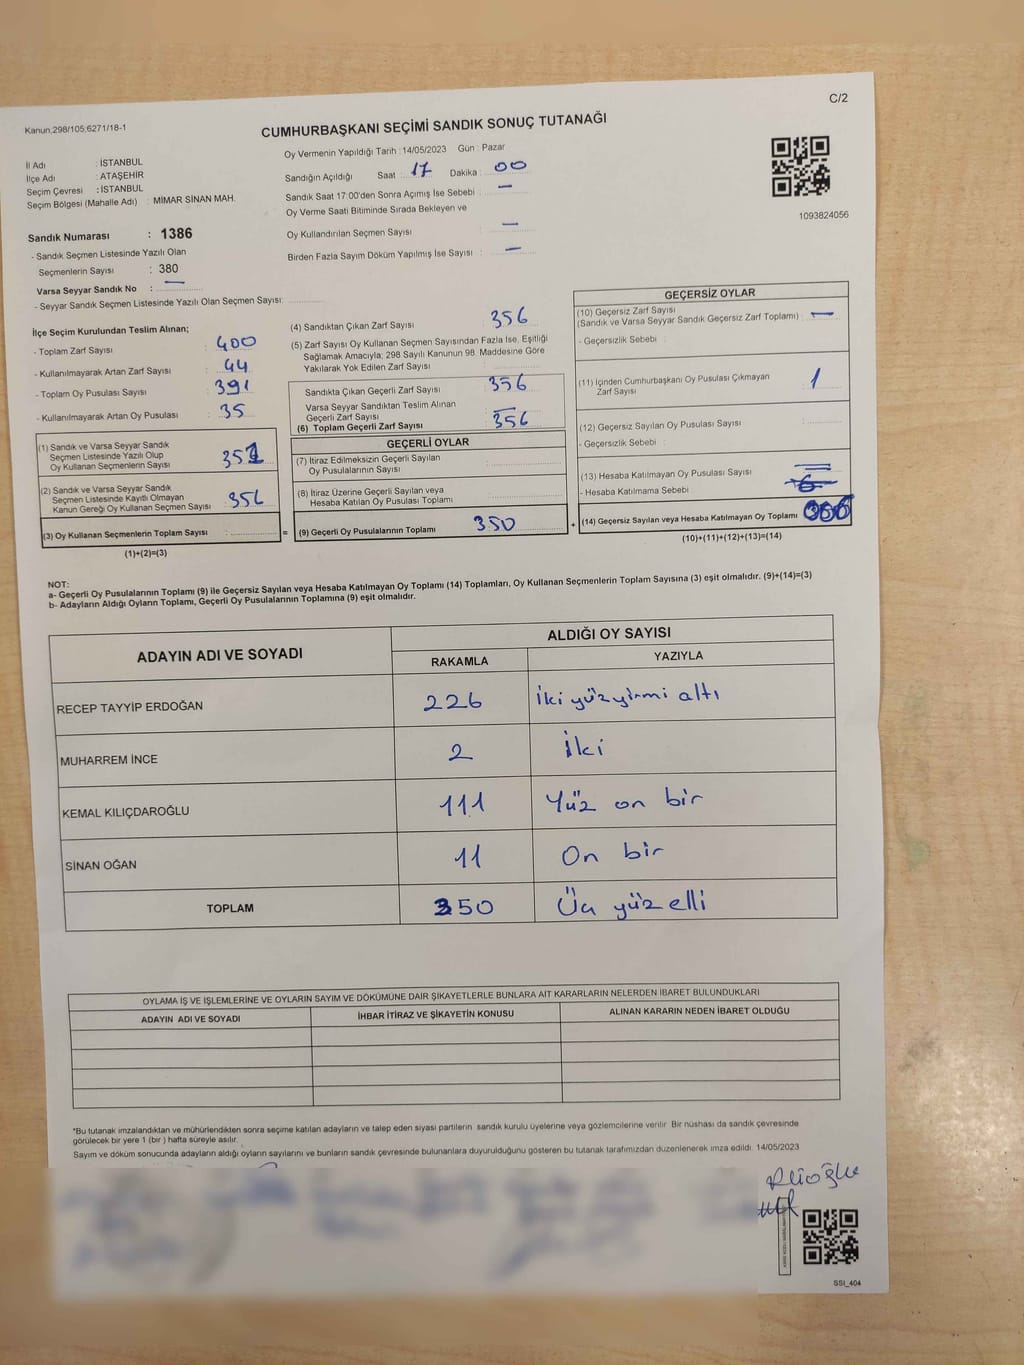 C/2
Kanun;298/105;6271/18-1
CUMHURBAŞKANI SEÇİMİ SANDIK SONUÇ TUTANAĞI
İl Adı : İSTANBUL
İlçe Adı : ATAŞEHİR
Seçim Çevresi : İSTANBUL
Seçim Bölgesi (Mahalle Adı) : MİMAR SİNAN MAH.
Oy Vermenin Yapıldığı Tarih :14/05/2023 Gün : Pazar
Sandığın Açıldığı Saat : 17 Dakika : 00
Sandık Saat 17:00'den Sonra Açımış İse Sebebi : —
Oy Verme Saati Bitiminde Sırada Bekleyen ve
Oy Kullandırılan Seçmen Sayısı : —
Birden Fazla Sayım Döküm Yapılmış İse Sayısı : —
1093824056
Sandık Numarası : 1386
- Sandık Seçmen Listesinde Yazılı Olan
Seçmenlerin Sayısı : 380
Varsa Seyyar Sandık No : —
- Seyyar Sandık Seçmen Listesinde Yazılı Olan Seçmen Sayısı:
İlçe Seçim Kurulundan Teslim Alınan;
- Toplam Zarf Sayısı : 400
- Kullanılmayarak Artan Zarf Sayısı : 44
- Toplam Oy Pusulası Sayısı : 391
- Kullanılmayarak Artan Oy Pusulası : 35
(1) Sandık ve Varsa Seyyar Sandık
Seçmen Listesinde Yazılı Olup
Oy Kullanan Seçmenlerin Sayısı :
(2) Sandık ve Varsa Seyyar Sandık
Seçmen Listesinde Kayıtlı Olmayan
Kanun Gereği Oy Kullanan Seçmen Sayısı :
(3) Oy Kullanan Seçmenlerin Toplam Sayısı :
(1)+(2)=(3)
(4) Sandıktan Çıkan Zarf Sayısı : 356
(5) Zarf Sayısı Oy Kullanan Seçmen Sayısından Fazla İse, Eşitliği
Sağlamak Amacıyla, 298 Sayılı Kanunun 98. Maddesine Göre
Yakılarak Yok Edilen Zarf Sayısı :
Sandıkta Çıkan Geçerli Zarf Sayısı : 356
Varsa Seyyar Sandıktan Teslim Alınan
Geçerli Zarf Sayısı : —
(6) Toplam Geçerli Zarf Sayısı : 356
GEÇERLİ OYLAR
(7) İtiraz Edilmeksizin Geçerli Sayılan
Oy Pusulalarının Sayısı :
(8) İtiraz Üzerine Geçerli Sayılan veya
Hesaba Katılan Oy Pusulası Toplamı :
= (9) Geçerli Oy Pusulalarının Toplamı : 350 +
GEÇERSİZ OYLAR
(10) Geçersiz Zarf Sayısı
(Sandık ve Varsa Seyyar Sandık Geçersiz Zarf Toplamı) : —
- Geçersizlik Sebebi :
(11) İçinden Cumhurbaşkanı Oy Pusulası Çıkmayan
Zarf Sayısı : 1
(12) Geçersiz Sayılan Oy Pusulası Sayısı :
- Geçersizlik Sebebi :
(13) Hesaba Katılmayan Oy Pusulası Sayısı :
- Hesaba Katılmama Sebebi :
(14) Geçersiz Sayılan veya Hesaba Katılmayan Oy Toplamı :
(10)+(11)+(12)+(13)=(14)
NOT:
a- Geçerli Oy Pusulalarının Toplamı (9) ile Geçersiz Sayılan veya Hesaba Katılmayan Oy Toplamı (14) Toplamları, Oy Kullanan Seçmenlerin Toplam Sayısına (3) eşit olmalıdır. (9)+(14)=(3)
b- Adayların Aldığı Oyların Toplamı, Geçerli Oy Pusulalarının Toplamına (9) eşit olmalıdır.
ADAYIN ADI VE SOYADI ALDIĞI OY SAYISI
RAKAMLA YAZIYLA
RECEP TAYYİP ERDOĞAN 226 İki yüz yirmi altı
MUHARREM İNCE 2 İki
KEMAL KILIÇDAROĞLU 111 Yüz on bir
SİNAN OĞAN 11 On bir
TOPLAM 350 Üç yüz elli
OYLAMA İŞ VE İŞLEMLERİNE VE OYLARIN SAYIM VE DÖKÜMÜNE DAİR ŞİKAYETLERLE BUNLARA AİT KARARLARIN NELERDEN İBARET BULUNDUKLARI
ADAYIN ADI VE SOYADI İHBAR İTİRAZ VE ŞİKAYETİN KONUSU ALINAN KARARIN NEDEN İBARET OLDUĞU
*Bu tutanak imzalandıktan ve mühürlendikten sonra seçime katılan adayların ve talep eden siyasi partilerin sandık kurulu üyelerine veya gözlemcilerine verilir. Bir nüshası da sandık çevresinde
görülecek bir yere 1 (bir) hafta süreyle asılır.
Sayım ve döküm sonucunda adayların aldığı oyların sayılarını ve bunların sandık çevresinde bulunanlara duyurulduğunu gösteren bu tutanak tarafımızdan düzenlenerek imza edildi. 14/05/2023
SSI_404